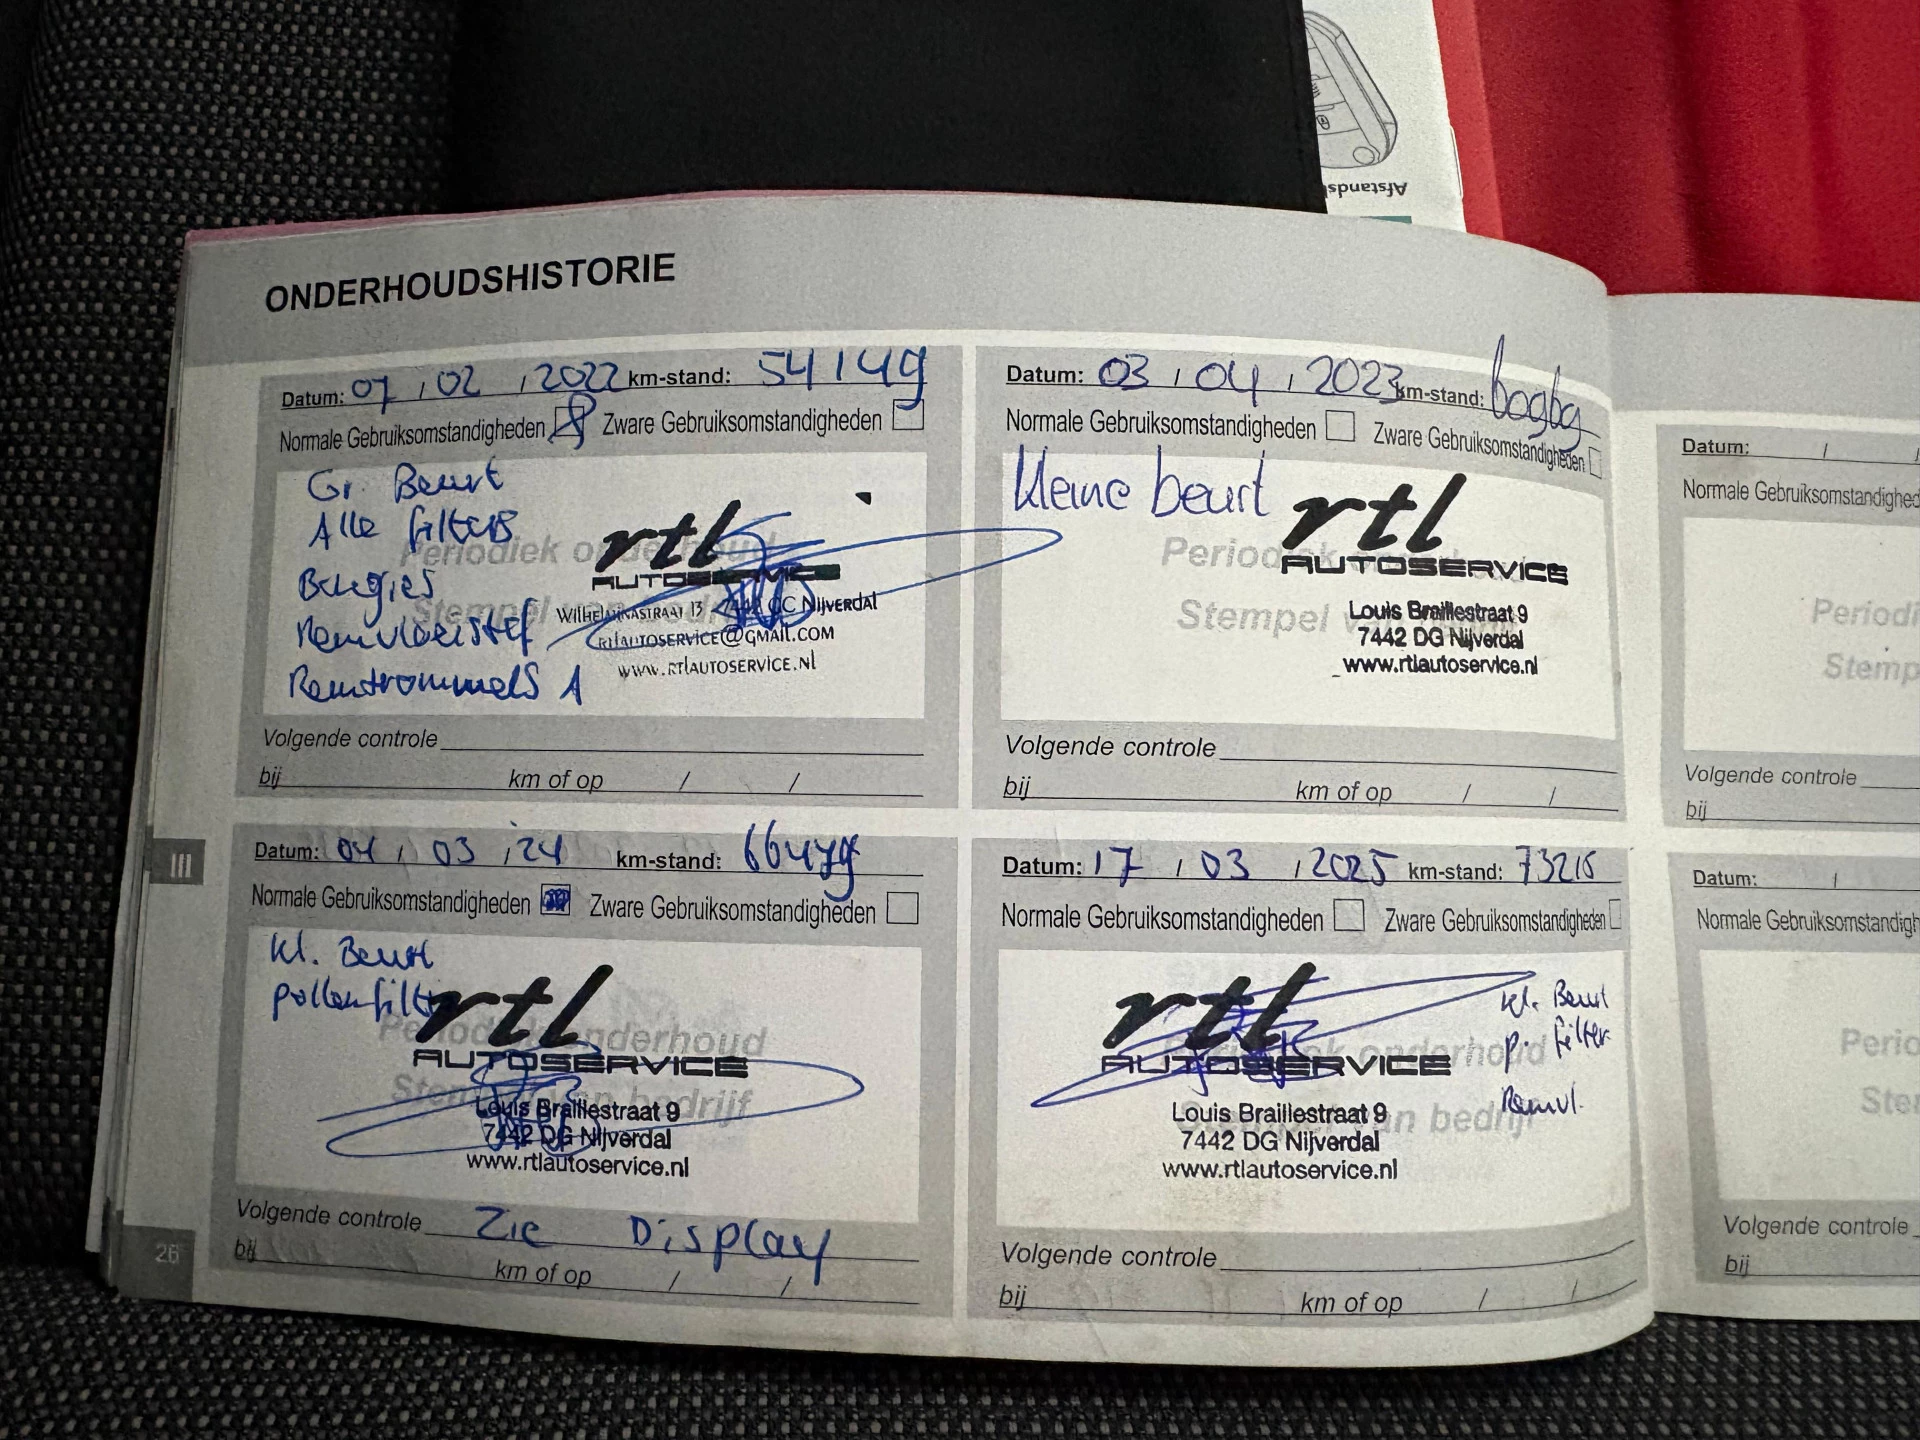 Afstands
ONDERHOUDSHISTORIE
Datum: 07 / 02 / 2022 km-stand: 54149
Normale Gebruiksomstandigheden Zware Gebruiksomstandigheden
Gr. Beurt
Alle filters
Bougies
Remvloeistof
Remtrommels A
Periodiek onderhoud
rtl
AUTOSERVICE
Wilhelminastraat 13 7442 CC Nijverdal
rtlautoservice@gmail.com
www.rtlautoservice.nl
Volgende controle
bij km of op / /
Datum: 03 / 04 / 2023 km-stand: 60969
Normale Gebruiksomstandigheden Zware Gebruiksomstandigheden
kleine beurt
Periodiek
Stempel
rtl
AUTOSERVICE
Louis Braillestraat 9
7442 DG Nijverdal
www.rtlautoservice.nl
Volgende controle
bij km of op / /
Datum: 04 / 03 / 24 km-stand: 66479
Normale Gebruiksomstandigheden Zware Gebruiksomstandigheden
kl. Beurt
pollenfilter
Periodiek onderhoud
Stempel van bedrijf
rtl
AUTOSERVICE
Louis Braillestraat 9
7442 DG Nijverdal
www.rtlautoservice.nl
Volgende controle Zie Display
bij km of op / /
Datum: 17 / 03 / 2025 km-stand: 73215
Normale Gebruiksomstandigheden Zware Gebruiksomstandigheden
kl. Beurt
p. filter
Remvl.
Periodiek onderhoud
Stempel van bedrijf
rtl
AUTOSERVICE
Louis Braillestraat 9
7442 DG Nijverdal
www.rtlautoservice.nl
Volgende controle
bij km of op / /
III
26
Datum: / /
Normale Gebruiksomstandighed
Periodi
Stemp
Volgende controle
bij
Datum: /
Normale Gebruiksomstandigh
Perio
Ste
Volgende controle
bij